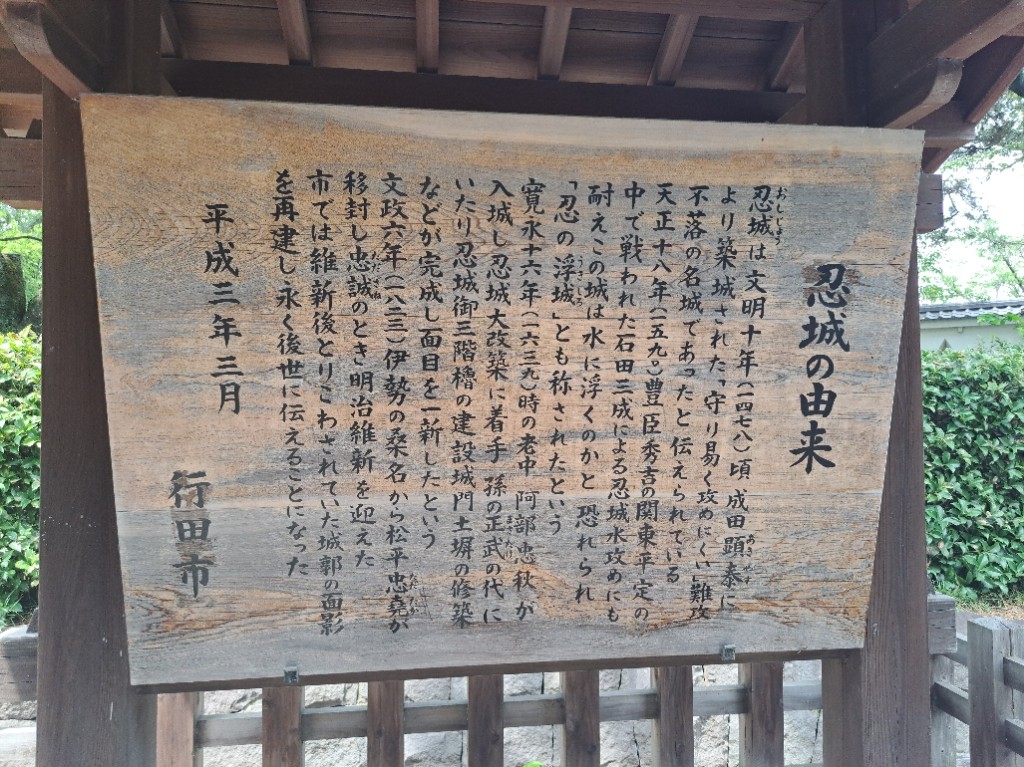 忍城の由来
忍城は文明十年（一四七八）頃 成田顕泰に
より築城された「守り易く攻めにくい」難攻
不落の名城であったと伝えられている
天正十八年（一五九〇）豊臣秀吉の関東平定の
中で戦われた石田三成による忍城水攻めにも
耐えこの城は水に浮くのかと 恐れられ
「忍の浮城」とも称されたという
寛永十六年（一六三九）時の老中 阿部忠秋が
入城し忍城大改築に着手 孫の正武の代に
いたり忍城御三階櫓の建設城門土塀の修築
などが完成し面目を一新したという
文政六年（一八二三）伊勢の桑名から松平忠堯が
移封し忠誠のとき明治維新を迎えた
市では維新後とりこわされていた城郭の面影
を再建し永く後世に伝えることになった
平成三年三月
行田市